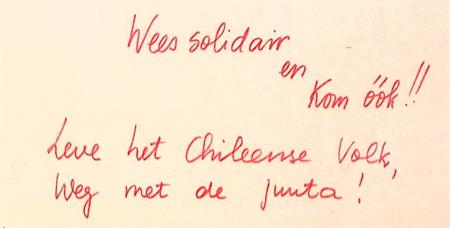 Wees solidair
en
Kom óók!!
Leve het Chileense Volk,
Weg met de junta!